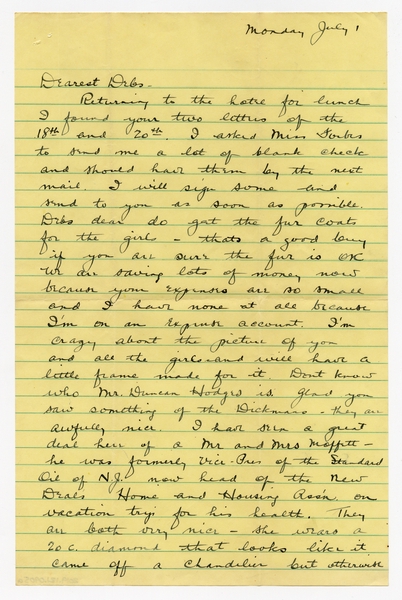 Monday July 1
Dearest Debs -
Returning to the hotel for lunch
I found your two letters of the
18th and 20th. I asked Miss Forbes
to send me a lot of blank check
and should have them by the next
mail. I will sign some and
send to you as soon as possible.
Debs dear do get the fur coats
for the girls - thats a good buy
if you are sure the fur is OK
We are saving lots of money now
because your expenses are so small
and I have none at all because
I'm on an expense account. I'm
crazy about the picture of you
and all the girls and will have a
little frame made for it. Dont know
who Mr. Duncan Hodges is. Glad you
saw something of the Dickmans - they are
awfully nice. I have seen a great
deal here of a Mr and Mrs Moffett -
he was formerly Vice-Pres of the Standard
Oil of N.J. now head of the New
Deals Home and Housing Ass'n on
vacation trip for his health. They
are both very nice - she wears a
20 c. diamond that looks like it
came off a chandelier but otherwise